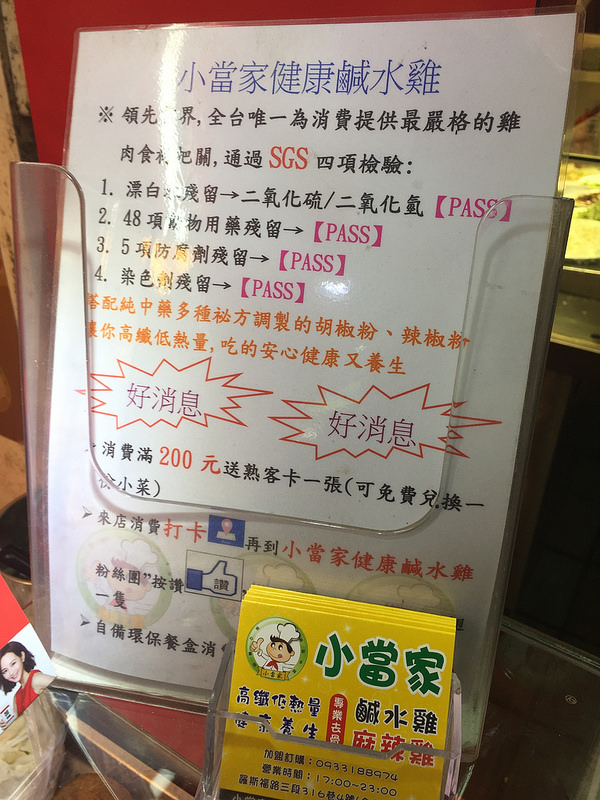 小當家健康鹹水雞
※ 領先業界,全台唯一為消費提供最嚴格的雞
肉食材把關,通過SGS 四項檢驗:
1. 漂白 殘留→二氧化硫/二氧化氫【PASS】
2. 48項動物用藥殘留→【PASS】
3. 5項防腐劑殘留→【PASS】
4. 染色劑殘留→【PASS】
搭配純中藥多種祕方調製的胡椒粉、辣椒粉
讓你高纖低熱量,吃的安心健康又養生
好消息
好消息
➢消費滿 200 元送熟客卡一張(可免費兌換一
小菜)
➢來店消費打卡 再到小當家健康鹹水雞
粉絲團"按讚 讚
一隻
➢自備環保餐盒消
小當家
小當家
高纖低熱量
健康養生
專業去骨
鹹水雞
麻辣雞
加盟訂購:0933188974
營業時間:17:00~23:00
羅斯福路三段316巷4號